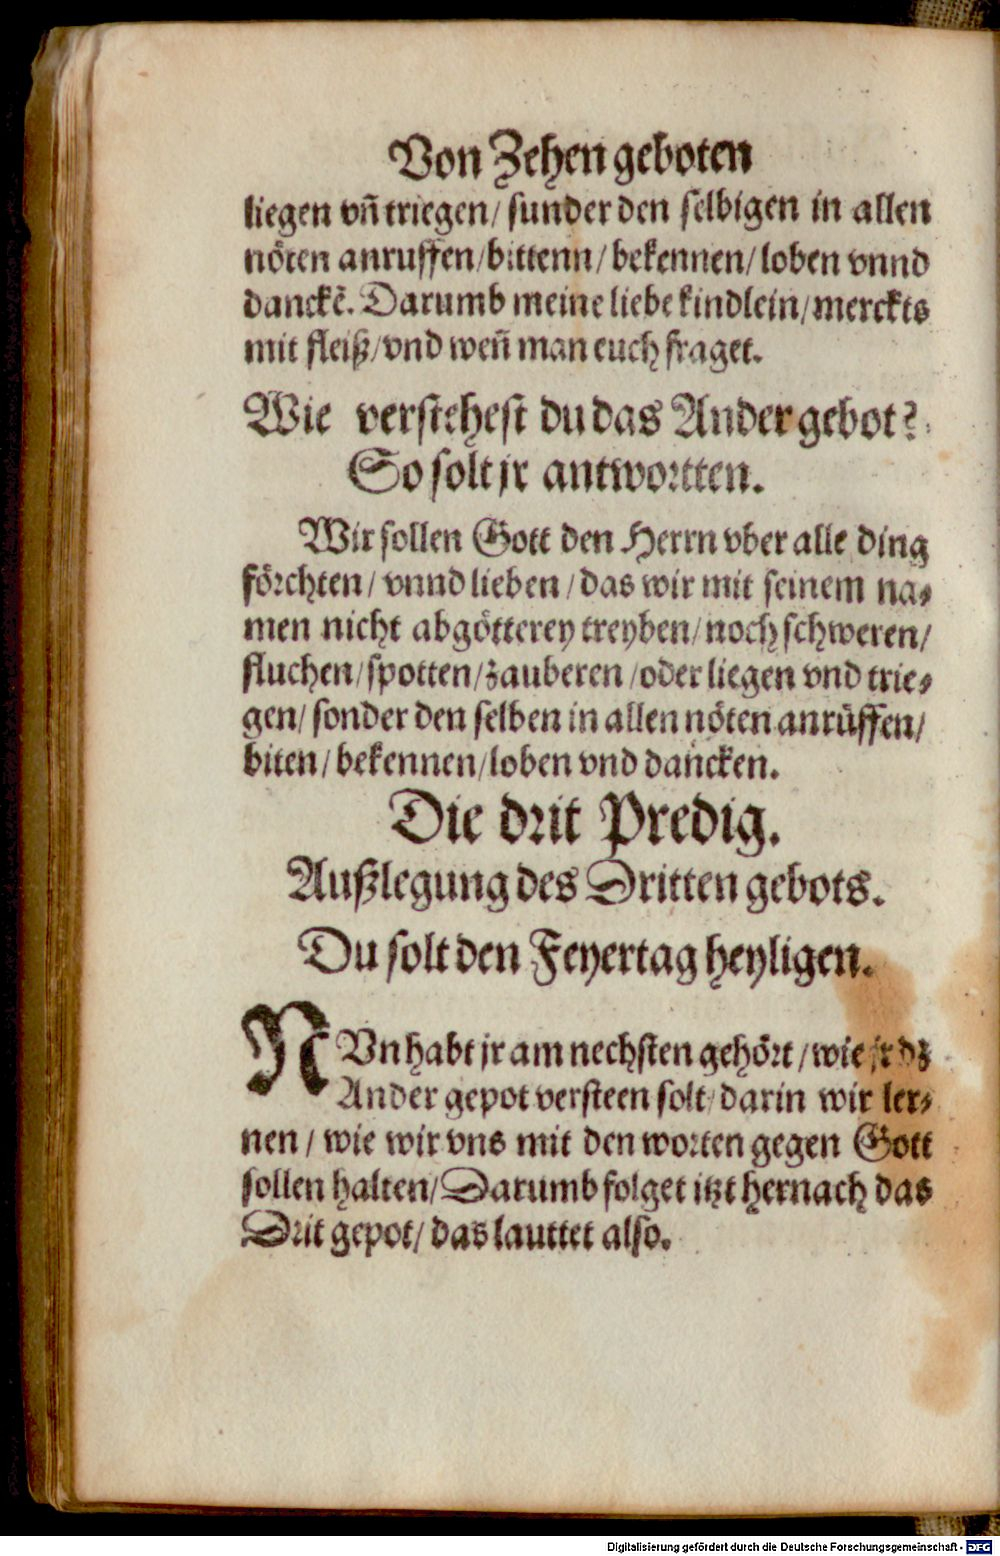 Von Zehen geboten
liegen vñ triegen/ sunder den selbigen in allen
nöten anruffen/ bittenn/ bekennen/ loben vnnd
danckẽ. Darumb meine liebe kindlein/ merckts
mit fleiß/ vnd weñ man euch fraget.
Wie verstehest du das Ander gebot?
So solt jr antwortten.
Wir sollen Gott den Herrn vber alle ding
förchten/ vnnd lieben/ das wir mit seinem na⸗
men nicht abgötterey treyben/ noch schweren/
fluchen/ spotten/ zauberen/ oder liegen vnd trie⸗
gen/ sonder den selben in allen nöten anrüffen/
biten/ bekennen/ loben vnd dancken.
Die drit Predig.
Außlegung des Dritten gebots.
Du solt den Feyertag heyligen.
NVn habt jr am nechsten gehört/ wie jr dz
Ander gepot versteen solt/ darin wir ler⸗
nen/ wie wir vns mit den worten gegen Gott
sollen halten/ Darumb folget itzt hernach das
Drit gepot/ das lauttet also.
Digitalisierung gefördert durch die Deutsche Forschungsgemeinschaft - DFG